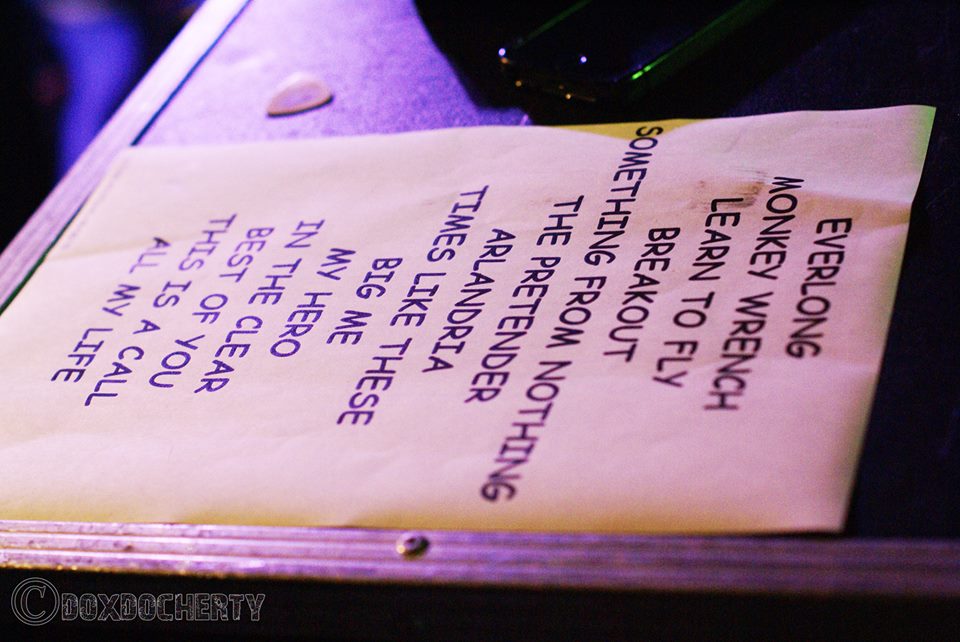 EVERLONG
MONKEY WRENCH
LEARN TO FLY
BREAKOUT
SOMETHING FROM NOTHING
THE PRETENDER
ARLANDRIA
TIMES LIKE THESE
BIG ME
MY HERO
IN THE CLEAR
BEST OF YOU
THIS IS A CALL
ALL MY LIFE
© DOXDOCHERTY